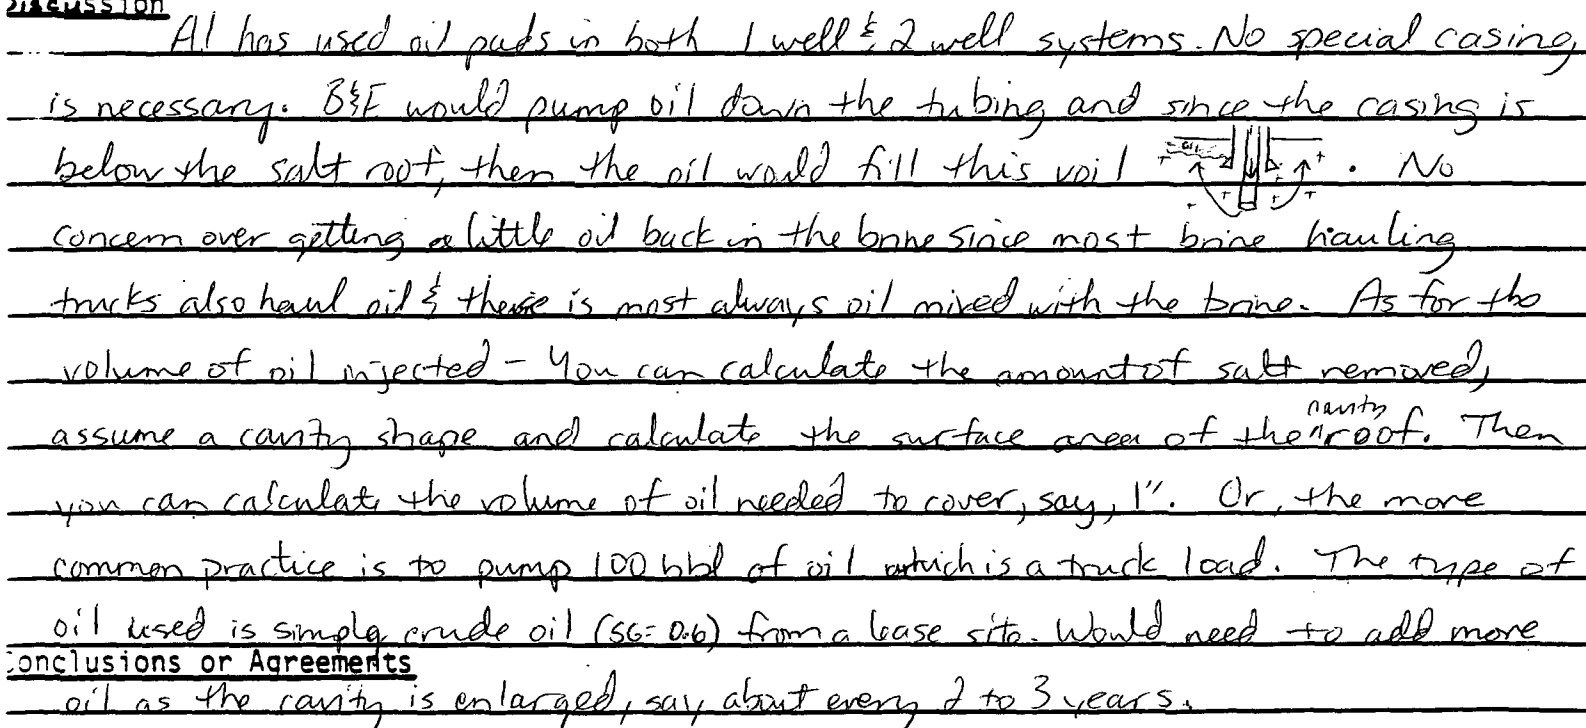 Discussion
Al has used oil pads in both 1 well & 2 well systems. No special casing
is necessary. B&E would pump oil down the tubing and since the casing is
below the salt roof, then the oil would fill this voil OIL . No
concern over getting a little oil back in the brine since most brine hauling
trucks also haul oil & there is most always oil mixed with the brine. As for the
volume of oil injected - You can calculate the amount of salt removed,
assume a cavity shape and calculate the surface area of the cavity roof. Then
you can calculate the volume of oil needed to cover, say, 1". Or, the more
common practice is to pump 100 bbl of oil which is a truck load. The type of
oil used is simply crude oil (SG=0.6) from a lease site. Would need to add more
Conclusions or Agreements
oil as the cavity is enlarged, say about every 2 to 3 years.